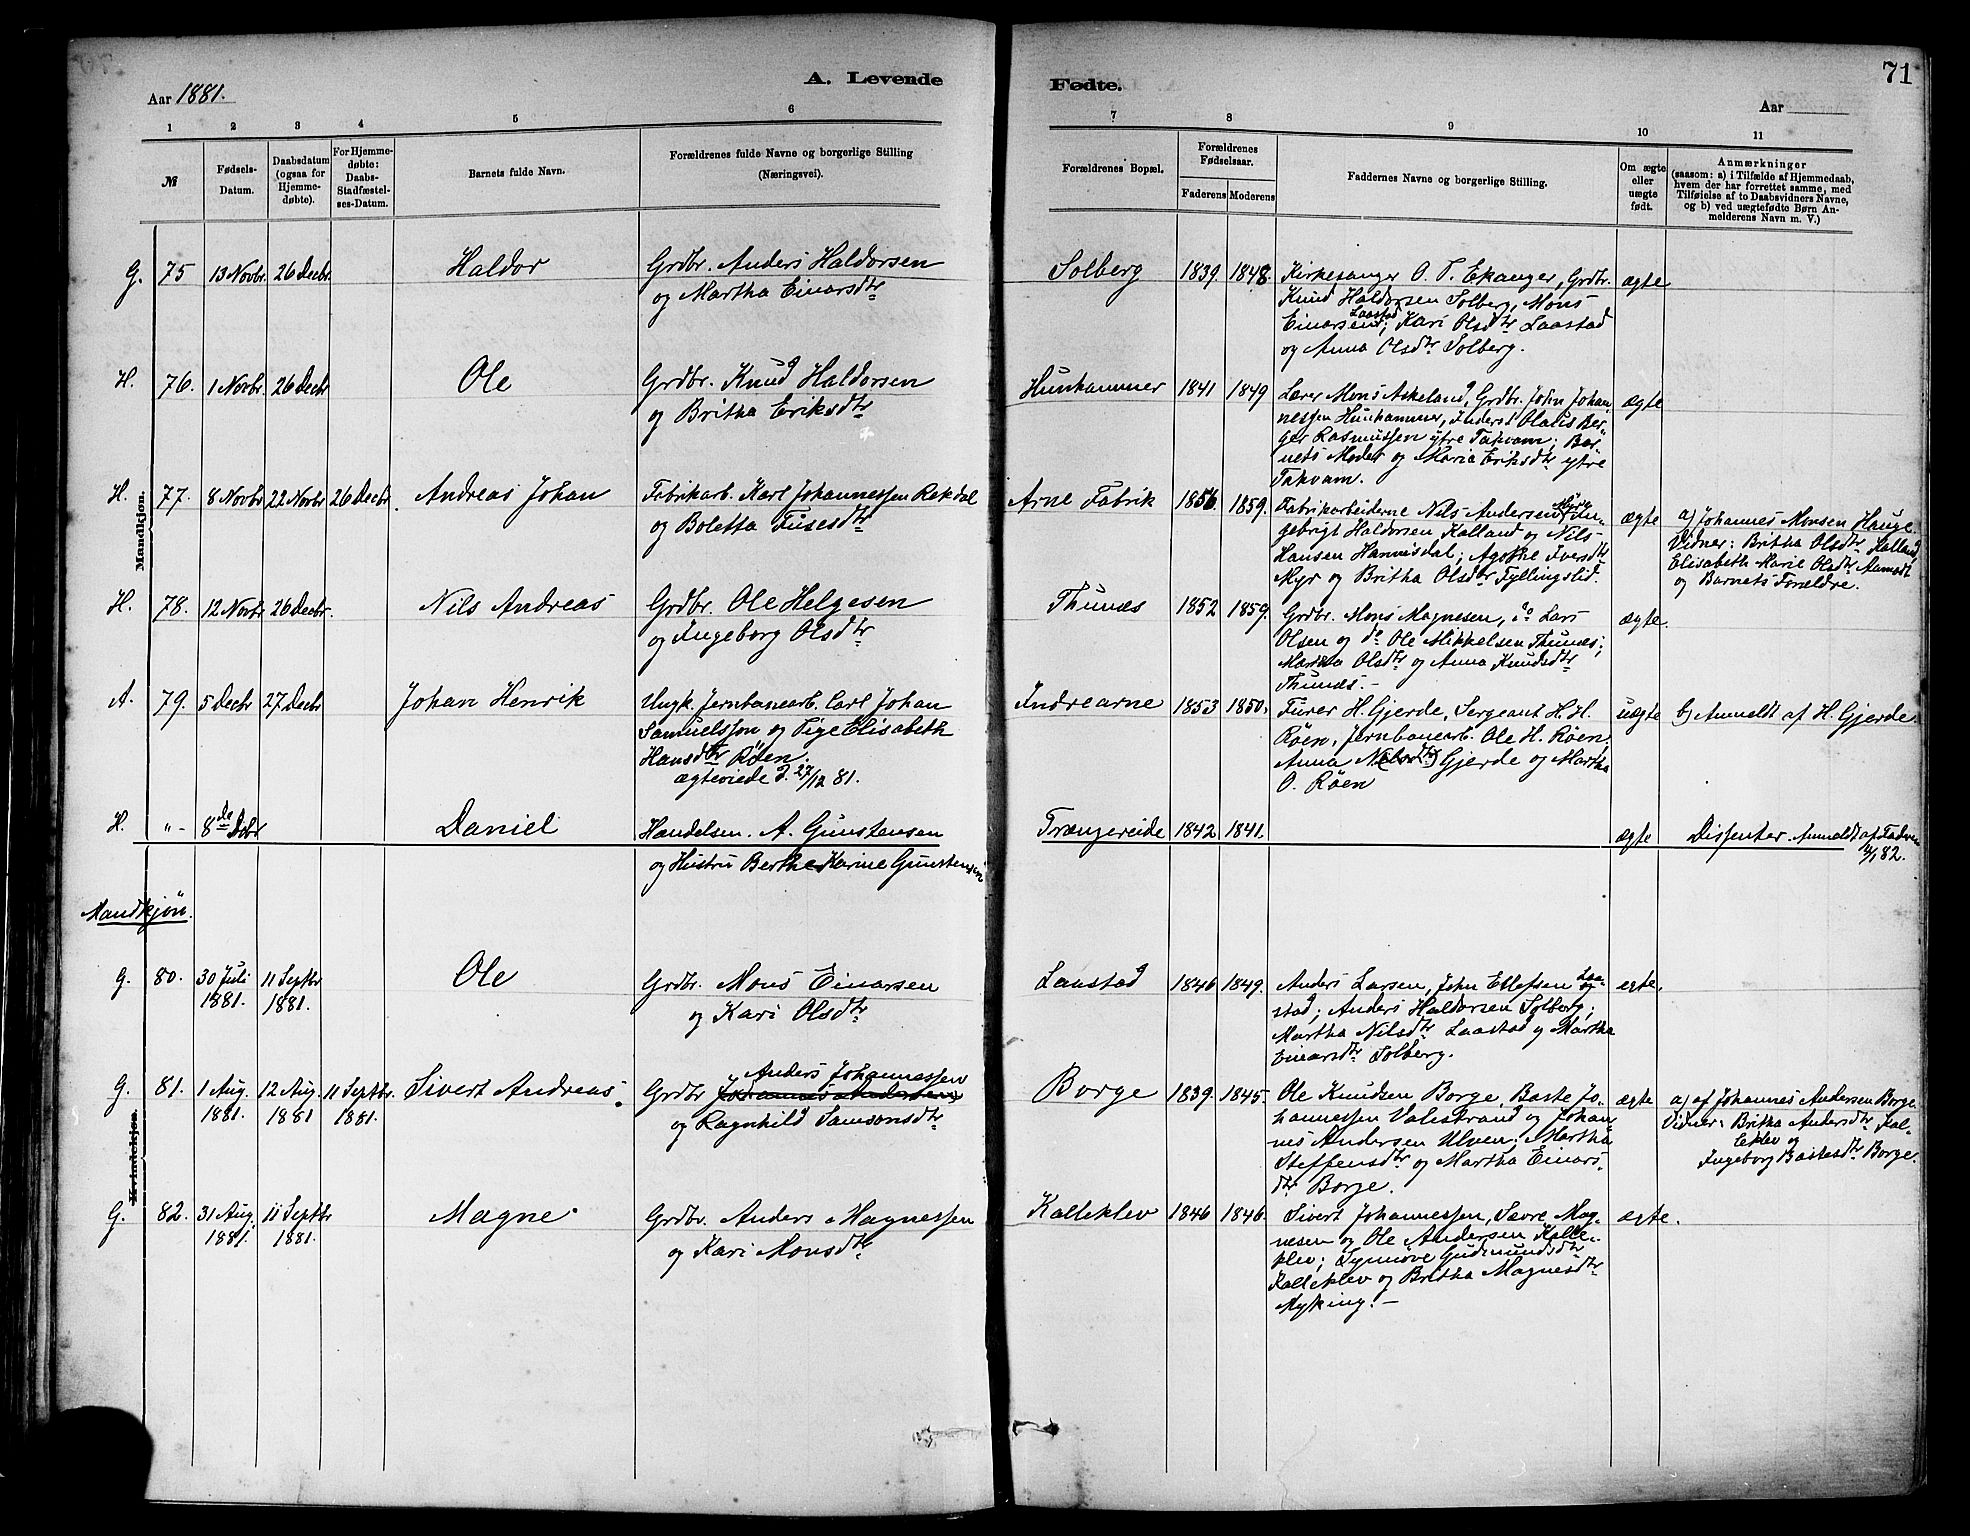 A. Levende
Fødte.
71
Aar 1881.
Aar
1 2 3 4 5 6
7 8 9 10 11
№
Fødsels-Datum.
Daabsdatum (ogsaa for Hjemmedøbte).
For Hjemmedøbte: Daabs-Stadfæstelses-Datum.
Barnets fulde Navn.
Forældrenes fulde Navne og borgerlige Stilling (Næringsvei).
Forældrenes Bopæl.
Forældrenes Fødselsaar.
Faderens Moderens
Faddernes Navne og borgerlige Stilling.
Om ægte eller uægte født.
Anmærkninger
(saasom: a) i Tilfælde af Hjemmedaab,
hvem der har forrettet samme, med
Tilføielse af to Daabsvidners Navne,
og b) ved uægtefødte Børn An-
melderens Navn m. V.)
Mandkjøn.
G. 75 13 Novbr. 26 Decbr. Haldor Grdbr. Anders Haldorsen
og Martha Einarsdtr
Solberg 1839 1848. Kirkesanger O. T. Ekanger, Grdbr. ægte
Knud Haldorsen Solberg, Mons
Einarsen Laastad; Kari Olsdtr Laastad
og Anna Olsdtr Solberg.
H. 76. 1 Novbr. 26 Decbr Ole Grdbr. Knud Haldorsen
og Britha Eriksdtr
Hunhammer 1841 1849 Lærer Mons Askeland, Grdbr. John Johan- ægte
nessen Hunhammer, Inderst Olaus Ber-
ger Rasmussen ytre Takvam; Bar-
nets Moder og Maria Eriksdtr ytre
Takvam.
H. 77. 8 Novbr 22 Novbr 26 Decbr. Andreas Johan Fabrikarb. Karl Johannessen Rekdal
og Boletta Fusesdtr
Arne Fabrik 1856. 1859. Fabrikarbeiderne Nils Andersen Myr, In- ægte
gebrigt Haldorsen Kalland og Nils
Hansen Hannisdal; Agathe Iversdtr
Myr og Britha Olsdtr Fyllingslid.
a) Johannes Monsen Hauge.
Vidner: Britha Olsdtr Kalland
Elisabeth Marie Olsdtr Aamodt
og Barnets Forældre.
H. 78. 12 Novbr 26 Decbr. Nils Andreas Grdbr. Ole Helgesen
og Ingeborg Olsdtr
Thunæs 1852 1859. Grdbr. Mons Magnesen, do Lars ægte.
Olsen og do Ole Mikkelsen Thunæs;
Martha Olsdtr og Anna Knudsdtr
Thunæs.-
A. 79. 5 Decbr 27 Decbr Johan Henrik Ungk. Jernbanearb. Carl Johan
Samuelsson og Pige Elisabeth
Hansdtr Røen.
ægteviede d. 27/12 81.
Indrearne 1853 1850. Furer H. Gjerde, Sergeant H. H. uægte b) Anmeldt af H. Gjerde.
Røen, Jernbanearb. Ole H. Røen,
Anna N(ilsdtr) Gjerde og Martha
O. Røen
H. "- 8de Debr Daniel Handelsm. A. Gunstensen
og Hustru Berthe Karine Gunstensen
Trængereide 1842 1841. ægte Dissenter. Anmeldt af Faderen
82.
Mandkjøn.
G. 80. 30 Juli 1881. 11 Septbr 1881. Ole Grdbr. Mons Einarsen
og Kari Olsdtr
Laastad 1846 1849. Anders Larsen, John Ellefsen Laa- egte.
stad; og Anders Haldorsen Solberg;
Martha Nilsdtr Laastad og Martha
Einarsdtr Solberg.
Kvindekjøn.
G. 81. 1 Aug. 1881. 12 Aug. 1881 11 Septbr. 1881. Sivert Andreas. Grdbr Johannes Andersen Anders Johannessen
og Ragnhild Samsonsdtr
Borge 1839 1845. Ole Knudsen Borge, Baste Jo- ægte
hannessen Valestrand og Johan-
nes Andersen Ulven; Martha
Steffensdtr og Martha Einars-
dtr Borge.
a) af Johannes Andersen Borge.
Vidner: Britha Andersdtr Kal-
leklev og
Ingeborg Bastesdtr Borge.
G. 82. 31 Aug. 1881. 11 Septbr 1881. Magne Grdbr. Anders Magnessen
og Kari Monsdtr
Kalleklev 1846 1846. Sivert Johannessen, Sævre Mag- ægte.
nesen og Ole Andersen Kalle-
klev; Synnøve Gudmundsdtr
Kalleklev og Britha Magnesdtr
Myking.-